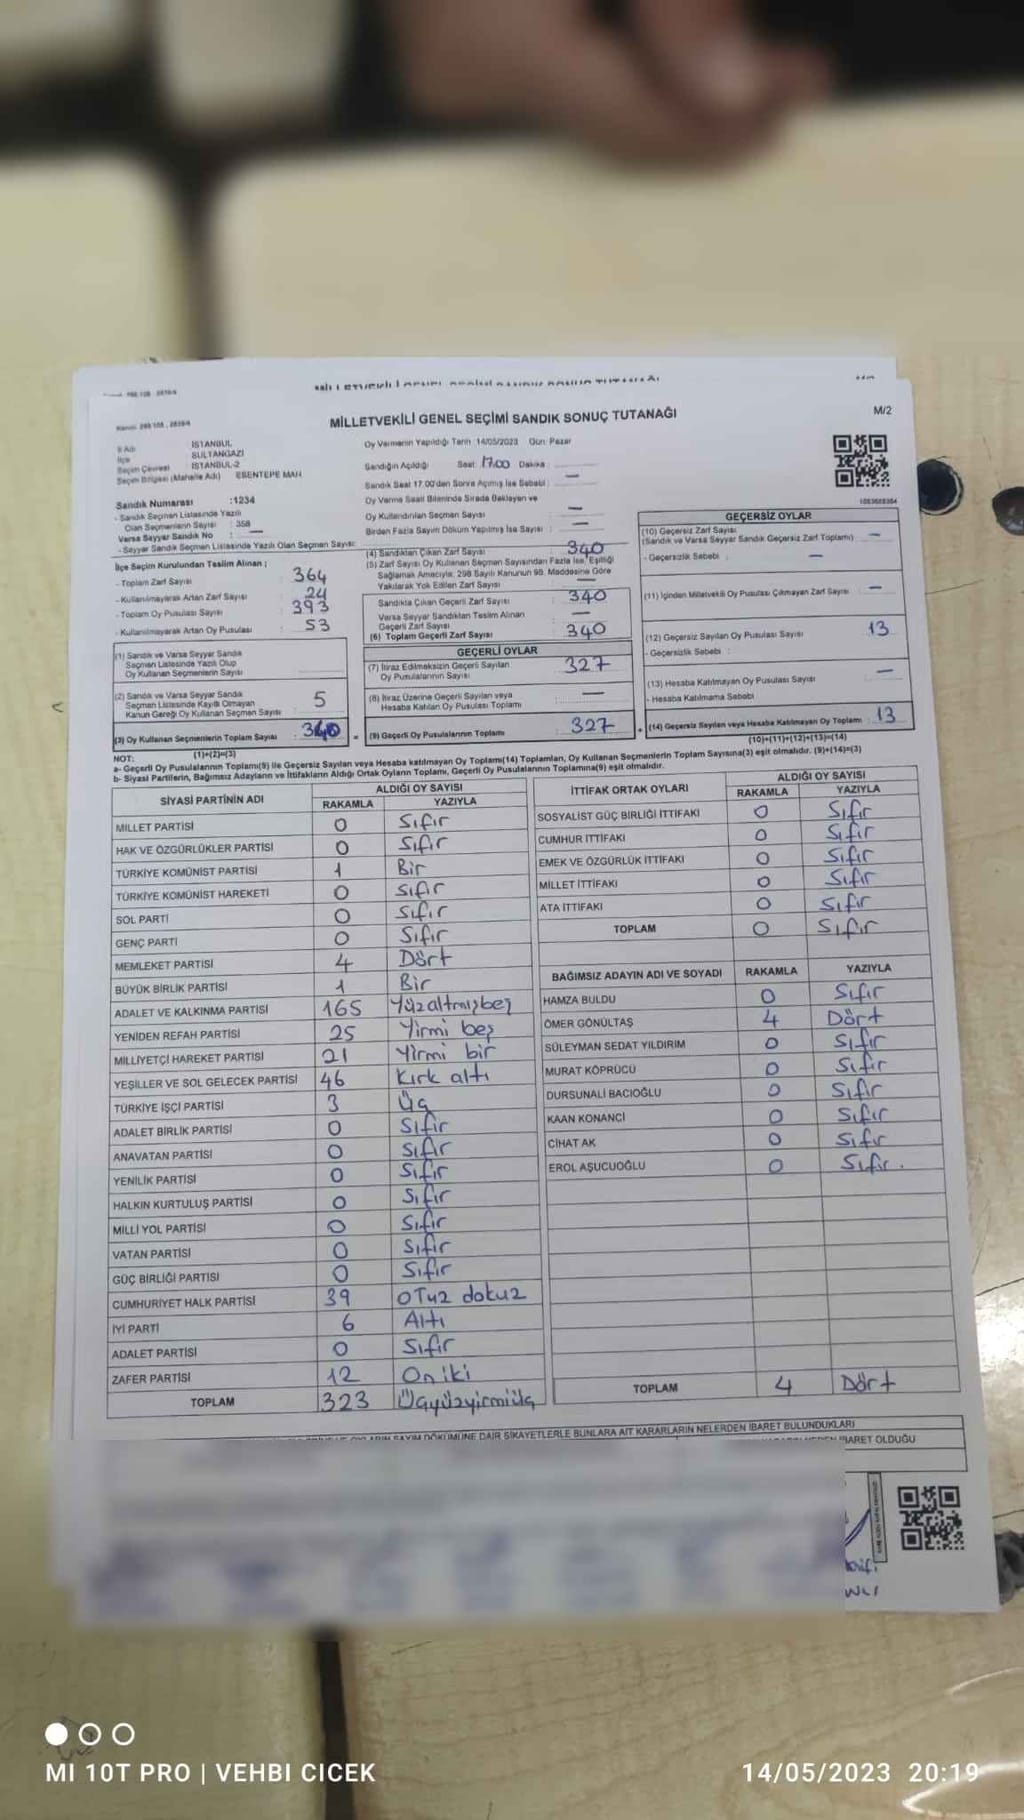 MİLLETVEKİLİ GENEL SEÇİMİ SANDIK SONUÇ TUTANAĞI
M/2
İl Adı İSTANBUL
İlçe SULTANGAZİ
Seçim Çevresi İSTANBUL-2
Seçim Bölgesi (Mahalle Adı) ESENTEPE MAH
Sandık Numarası :1234
- Sandık Seçmen Listesinde Yazılı
Olan Seçmenlerin Sayısı : 358
Varsa Seyyar Sandık No
- Seyyar Sandık Seçmen Listesinde Yazılı Olan Seçmen Sayısı:
İlçe Seçim Kurulundan Teslim Alınan ;
- Toplam Zarf Sayısı 364
- Kullanılmayarak Artan Zarf Sayısı 24
- Toplam Oy Pusulası Sayısı 393
- Kullanılmayarak Artan Oy Pusulası 53
(1) Sandık ve Varsa Seyyar Sandık
Seçmen Listesinde Yazılı Olup
Oy Kullanan Seçmenlerin Sayısı
(2) Sandık ve Varsa Seyyar Sandık
Seçmen Listesinde Kayıtlı Olmayan
Kanun Gereği Oy Kullanan Seçmen Sayısı 5
(3) Oy Kullanan Seçmenlerin Toplam Sayısı 340
(1)+(2)=(3)
Oy Vermenin Yapıldığı Tarih 14/05/2023 Gün: Pazar
Sandığın Açıldığı Saat: 17.00 Dakika :
Sandık Saat 17.00'den Sonra Açılmış İse Sebebi : —
Oy Verme Saati Bitiminde Sırada Bekleyen ve
Oy Kullandırılan Seçmen Sayısı : —
Birden Fazla Sayım Döküm Yapılmış İse Sayısı : —
(4) Sandıktan Çıkan Zarf Sayısı 340
(5) Zarf Sayısı Oy Kullanan Seçmen Sayısından Fazla İse, Eşitliği
Sağlamak Amacıyla; 298 Sayılı Kanunun 98. Maddesine Göre
Yakılarak Yok Edilen Zarf Sayısı —
Sandıkta Çıkan Geçerli Zarf Sayısı 340
Varsa Seyyar Sandıktan Teslim Alınan
Geçerli Zarf Sayısı —
(6) Toplam Geçerli Zarf Sayısı 340
GEÇERLİ OYLAR
(7) İtiraz Edilmeksizin Geçerli Sayılan
Oy Pusulalarının Sayısı 327
(8) İtiraz Üzerine Geçerli Sayılan veya
Hesaba Katılan Oy Pusulası Toplamı —
(9) Geçerli Oy Pusulalarının Toplamı 327
GEÇERSİZ OYLAR
(10) Geçersiz Zarf Sayısı
(Sandık ve Varsa Seyyar Sandık Geçersiz Zarf Toplamı) —
- Geçersizlik Sebebi : —
(11) İçinden Milletvekili Oy Pusulası Çıkmayan Zarf Sayısı —
(12) Geçersiz Sayılan Oy Pusulası Sayısı 13
- Geçersizlik Sebebi :
(13) Hesaba Katılmayan Oy Pusulası Sayısı —
- Hesaba Katılmama Sebebi
(14) Geçersiz Sayılan veya Hesaba Katılmayan Oy Toplamı 13
(10)+(11)+(12)+(13)=(14)
NOT:
a- Geçerli Oy Pusulalarının Toplamı(9) ile Geçersiz Sayılan veya Hesaba katılmayan Oy Toplamı(14) Toplamları, Oy Kullanan Seçmenlerin Toplam Sayısına(3) eşit olmalıdır. (9)+(14)=(3)
b- Siyasi Partilerin, Bağımsız Adayların ve İttifakların Aldığı Ortak Oyların Toplamı, Geçerli Oy Pusulalarının Toplamına(9) eşit olmalıdır.
SİYASİ PARTİNİN ADI ALDIĞI OY SAYISI
RAKAMLA YAZIYLA
MİLLET PARTİSİ 0 Sıfır
HAK VE ÖZGÜRLÜKLER PARTİSİ 0 Sıfır
TÜRKİYE KOMÜNİST PARTİSİ 1 Bir
TÜRKİYE KOMÜNİST HAREKETİ 0 Sıfır
SOL PARTİ 0 Sıfır
GENÇ PARTİ 0 Sıfır
MEMLEKET PARTİSİ 4 Dört
BÜYÜK BİRLİK PARTİSİ 1 Bir
ADALET VE KALKINMA PARTİSİ 165 Yüzaltmışbeş
YENİDEN REFAH PARTİSİ 25 Yirmi beş
MİLLİYETÇİ HAREKET PARTİSİ 21 Yirmi bir
YEŞİLLER VE SOL GELECEK PARTİSİ 46 Kırk altı
TÜRKİYE İŞÇİ PARTİSİ 3 Üç
ADALET BİRLİK PARTİSİ 0 Sıfır
ANAVATAN PARTİSİ 0 Sıfır
YENİLİK PARTİSİ 0 Sıfır
HALKIN KURTULUŞ PARTİSİ 0 Sıfır
MİLLİ YOL PARTİSİ 0 Sıfır
VATAN PARTİSİ 0 Sıfır
GÜÇ BİRLİĞİ PARTİSİ 0 Sıfır
CUMHURİYET HALK PARTİSİ 39 OTuz dokuz
İYİ PARTİ 6 Altı
ADALET PARTİSİ 0 Sıfır
ZAFER PARTİSİ 12 Oniki
TOPLAM 323 Üçyüzyirmiüç
İTTİFAK ORTAK OYLARI ALDIĞI OY SAYISI
RAKAMLA YAZIYLA
SOSYALİST GÜÇ BİRLİĞİ İTTİFAKI 0 Sıfır
CUMHUR İTTİFAKI 0 Sıfır
EMEK VE ÖZGÜRLÜK İTTİFAKI 0 Sıfır
MİLLET İTTİFAKI 0 Sıfır
ATA İTTİFAKI 0 Sıfır
TOPLAM 0 Sıfır
BAĞIMSIZ ADAYIN ADI VE SOYADI RAKAMLA YAZIYLA
HAMZA BULDU 0 Sıfır
ÖMER GÖNÜLTAŞ 4 Dört
SÜLEYMAN SEDAT YILDIRIM 0 Sıfır
MURAT KÖPRÜCÜ 0 Sıfır
DURSUNALİ BACIOĞLU 0 Sıfır
KAAN KONANCİ 0 Sıfır
CİHAT AK 0 Sıfır
EROL AŞUCUOĞLU 0 Sıfır.
TOPLAM 4 Dört
SAYIM DÖKÜMÜNE DAİR ŞİKAYETLERLE BUNLARA AİT KARARLARIN NELERDEN İBARET BULUNDUKLARI
İBARET OLDUĞU
MI 10T PRO | VEHBI CICEK
14/05/2023 20:19